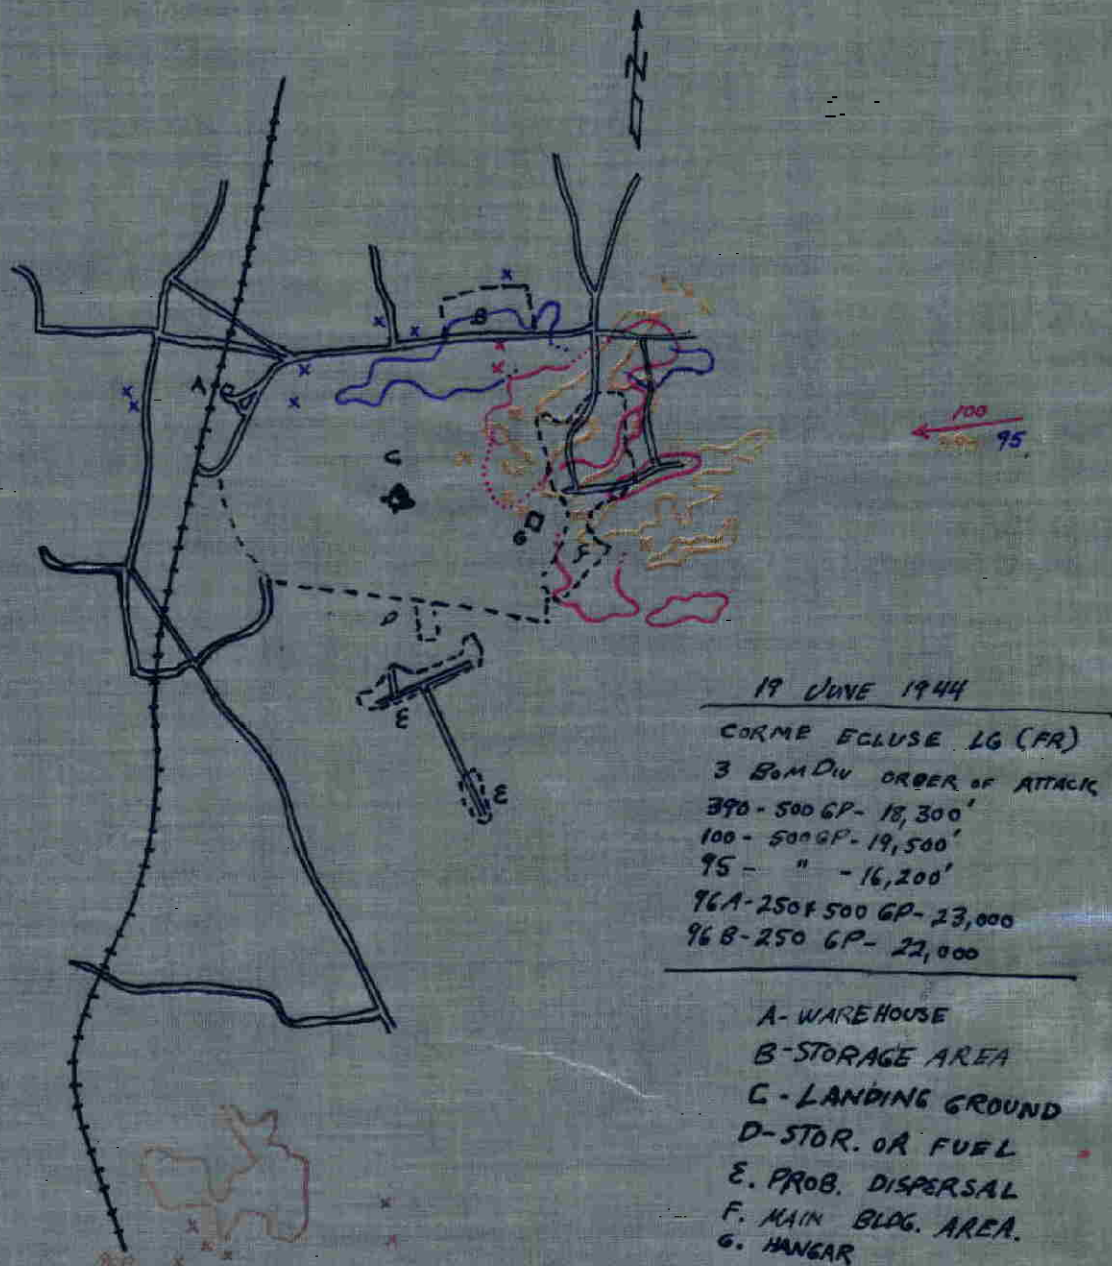 N
B
A
C
100
390 95
G
F
D
E
E
19 JUNE 1944
CORME ECLUSE LG (FR)
3 BOM DIV ORDER OF ATTACK
390 - 500 GP - 18,300'
100 - 500 GP - 19,500'
95 - " - 16,200'
96A - 250 & 500 GP - 23,000
96B - 250 GP - 22,000
A - WAREHOUSE
B - STORAGE AREA
C - LANDING GROUND
D - STOR. OR FUEL
E. PROB. DISPERSAL
F. MAIN BLDG. AREA.
G. HANGAR